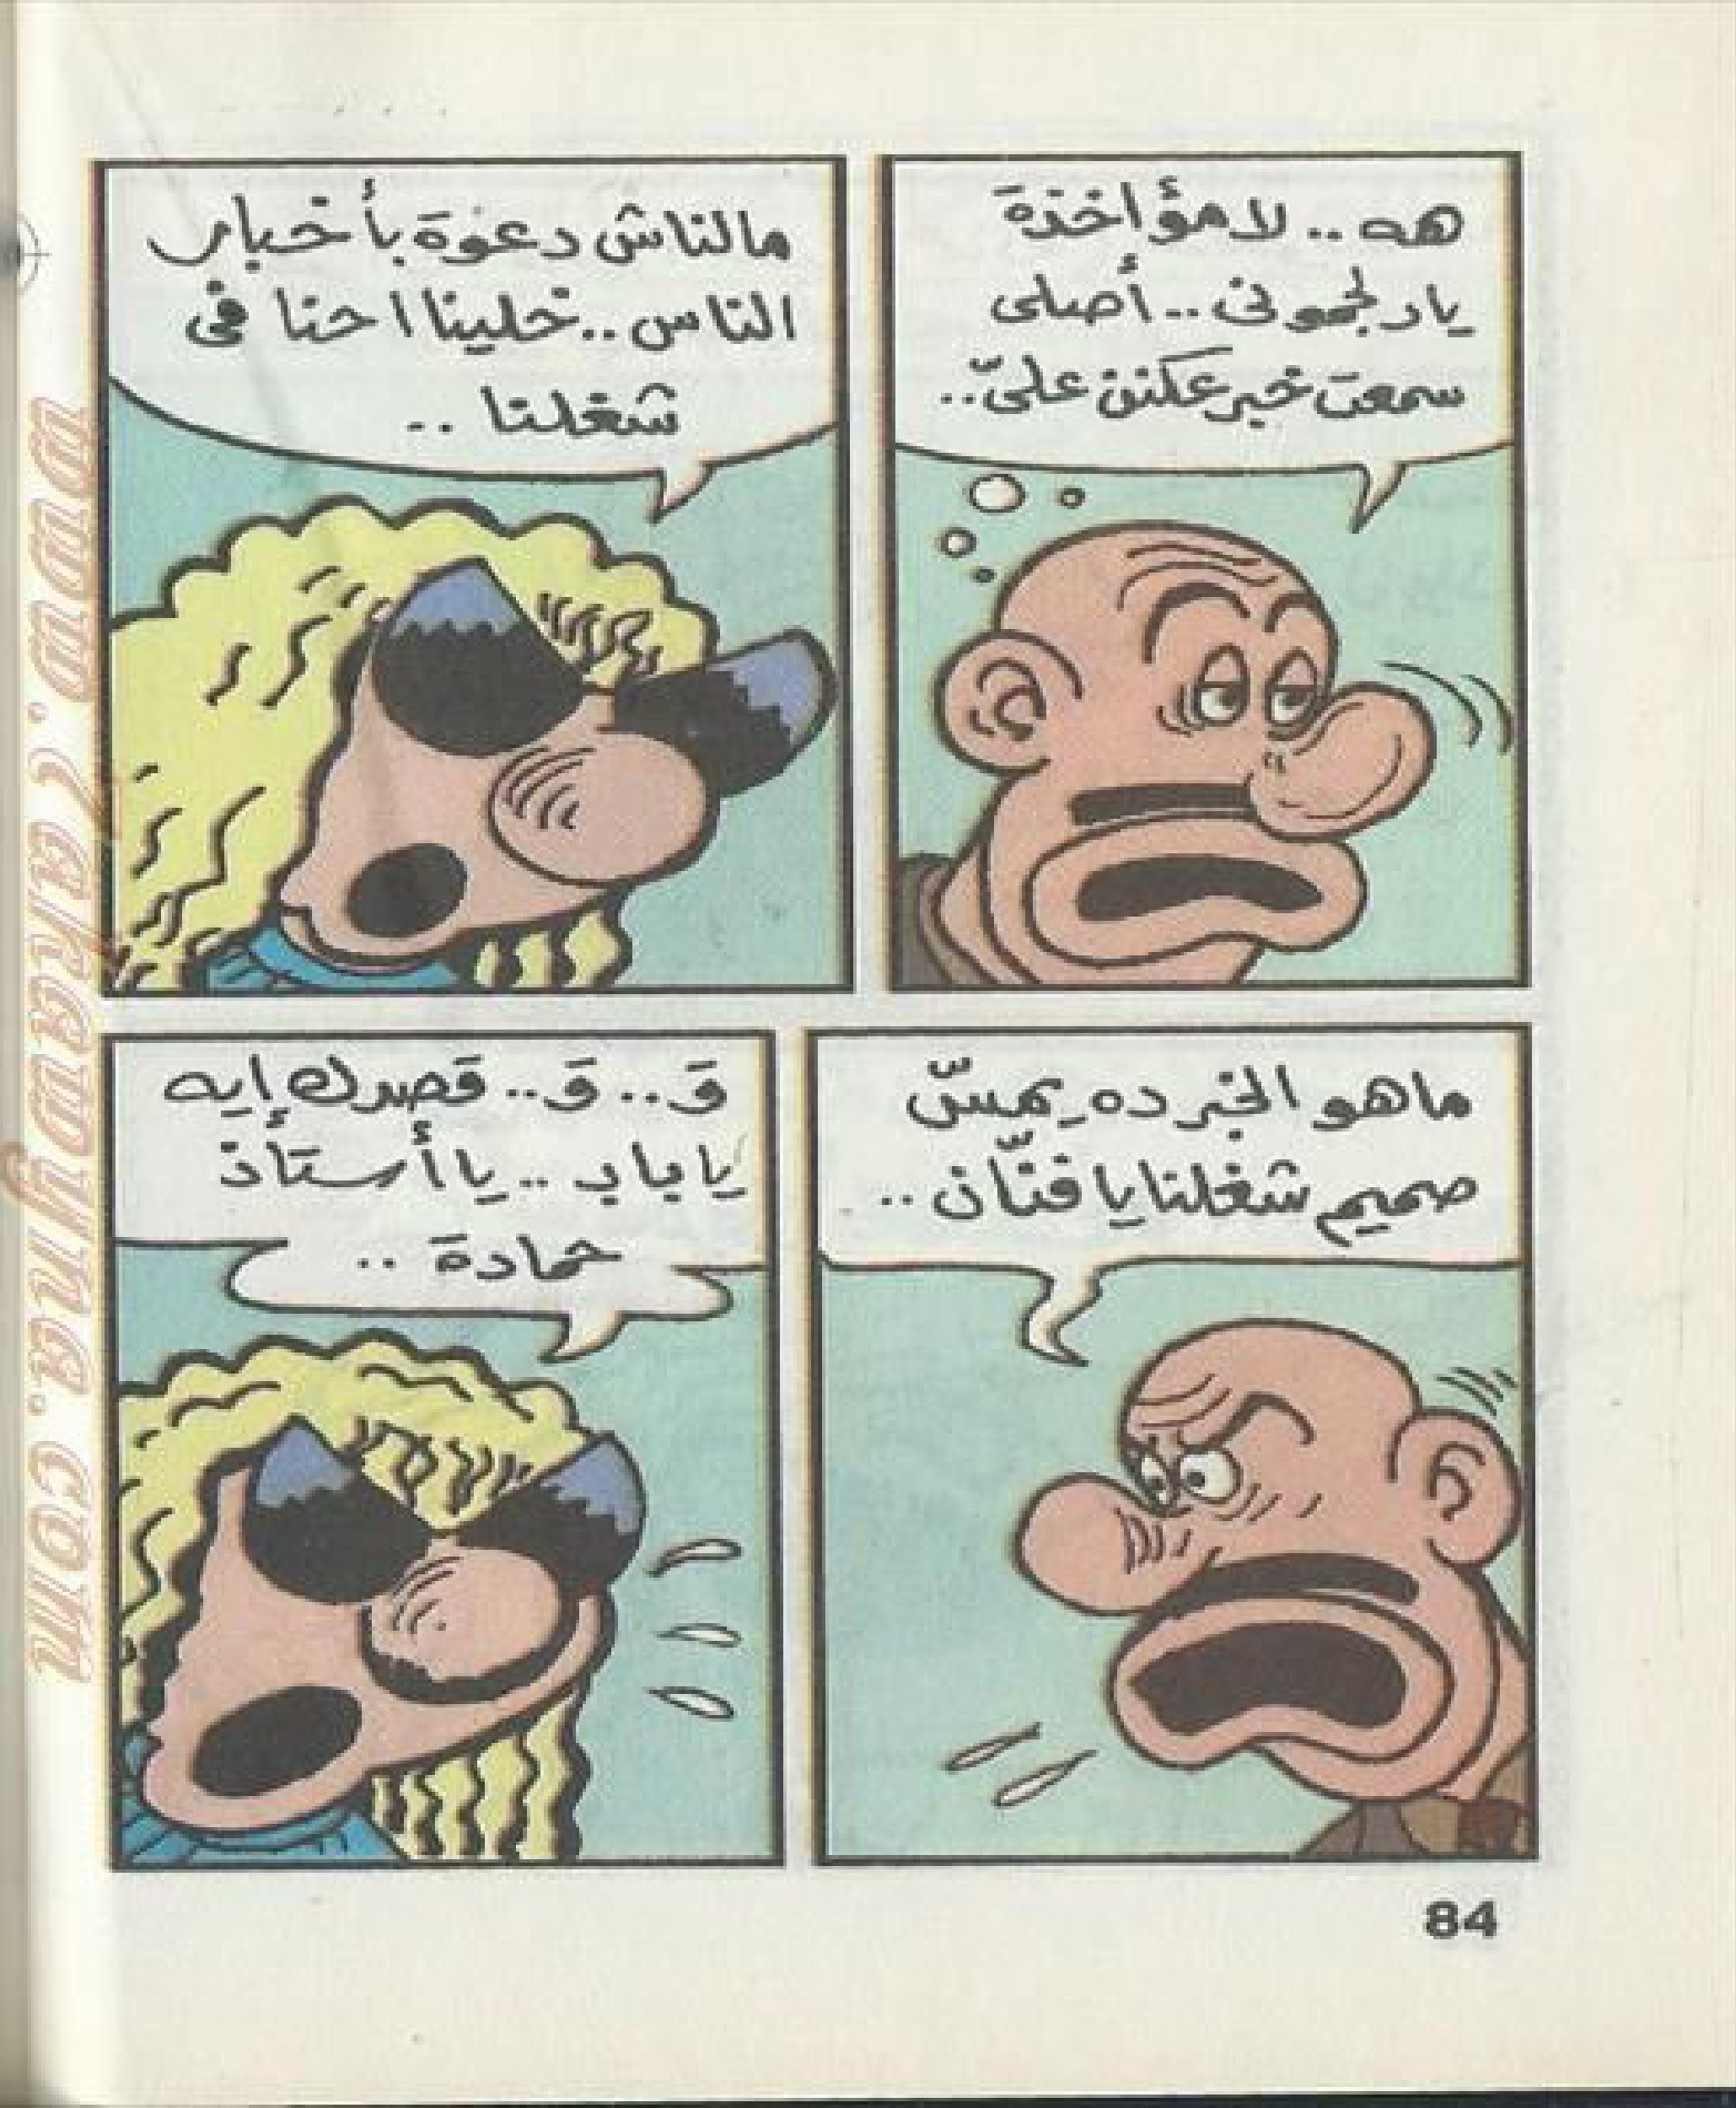 هه .. لا مؤاخذة
يا دلجمونى .. أصلى
سمعت خبر عكنن علىّ ..
مالناش دعوة بأخبار
الناس .. خلينا احنا فى
شغلنا ..
ما هو الخبر ده يمسّ
صميم شغلنا يا فنّان ..
وَ .. وَ .. قصدك إيه
يا باب .. يا أستاذ
حمادة ..
84
www.2alraawyna.com